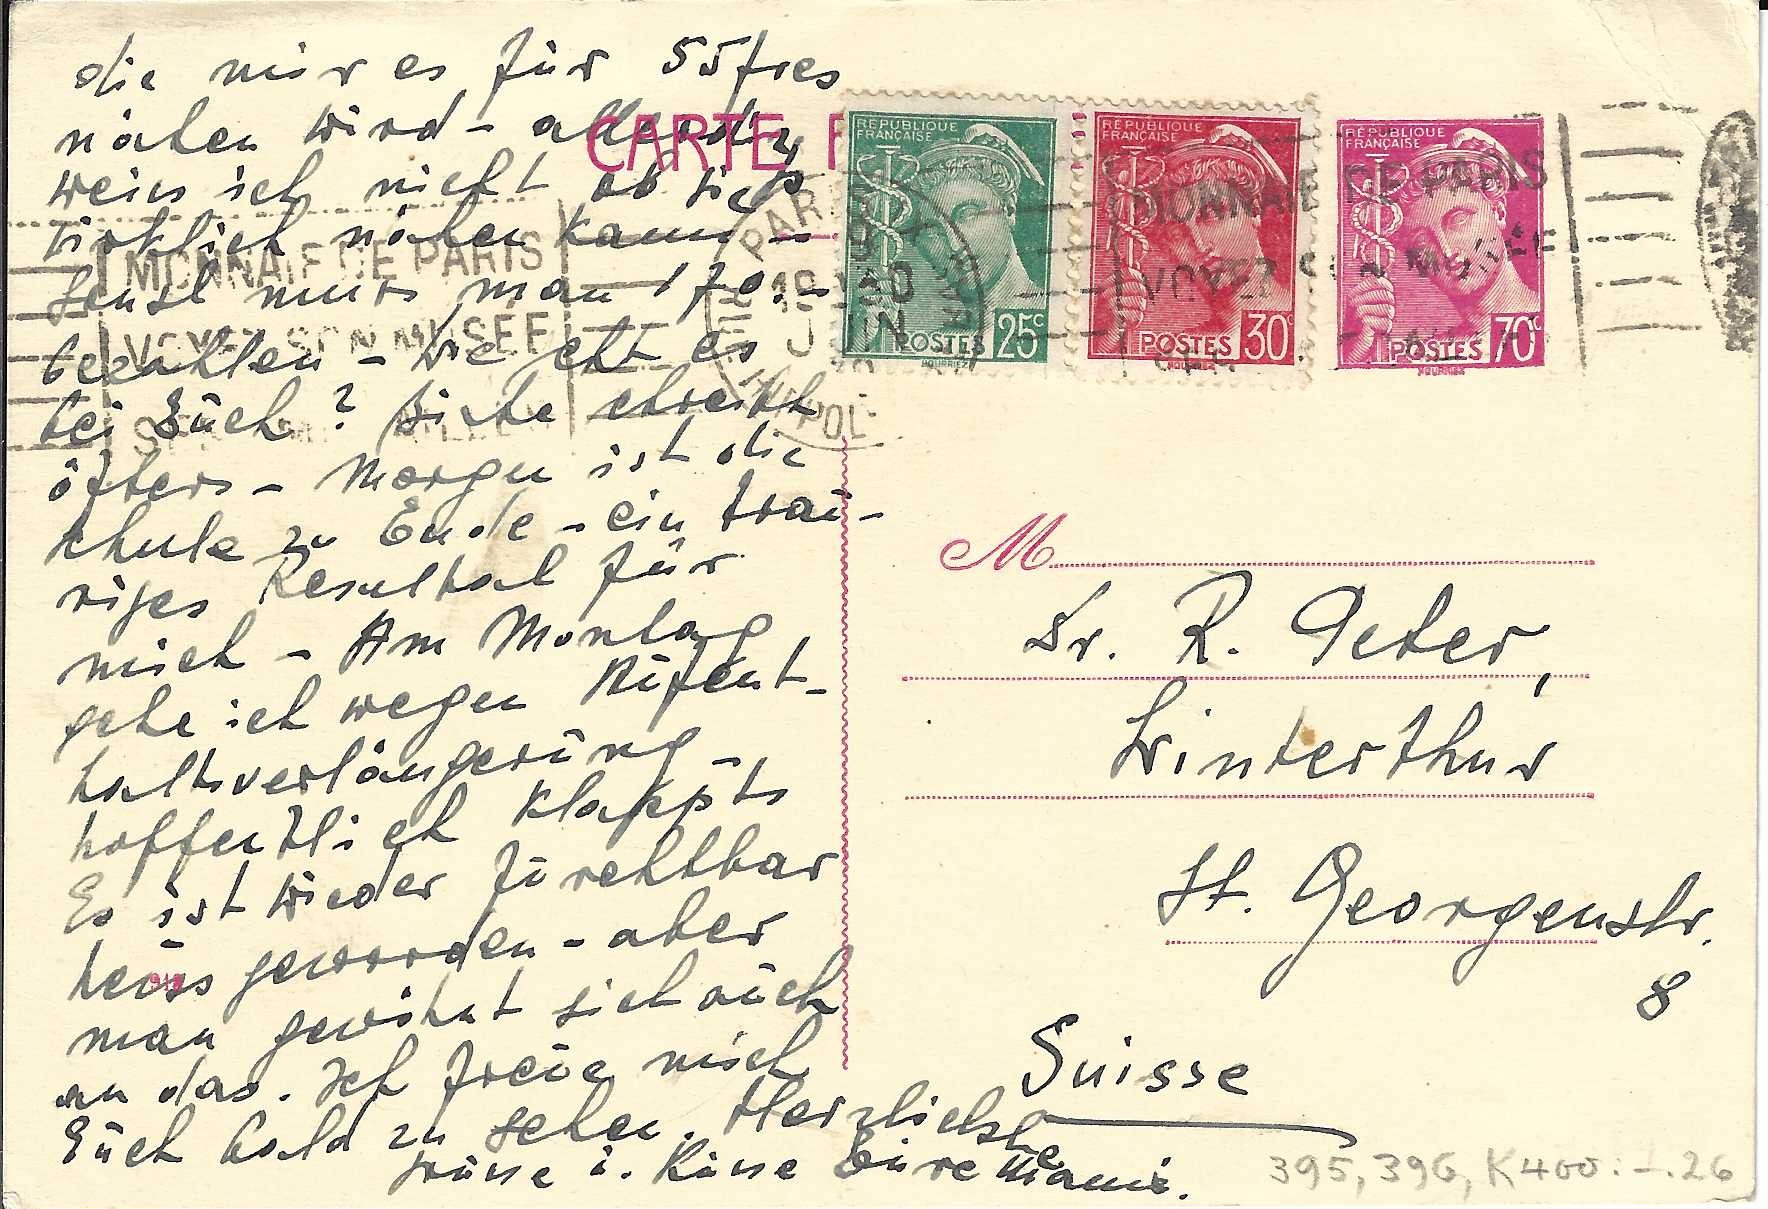 die mir es für 55 frcs
nähen wird – allerdin
weiss ich nicht ob sie
wirklich nähen kann –
sonst muss man 170.–
bezahlen – Wie geht es
bei Euch? Bitte schreibt
öfters – Morgen ist die
Schule zu Ende – ein trau-
riges Resultat für
mich – Am Montag
gehe ich wegen Aufent-
haltsverlängerung –
hoffentlich klappts
Es ist wieder furchtbar
heiss geworden – aber
man gewöhnt sich auch
an das. Ich freue mich
Euch bald zu sehen. Herzlichste
Grüsse u. Küsse Eure Mami.
CARTE P
RÉPUBLIQUE
FRANÇAISE
POSTES 25c
RÉPUBLIQUE
FRANÇAISE
POSTES 30c
RÉPUBLIQUE
FRANÇAISE
POSTES 70c
MONNAIE DE PARIS
VOYEZ SON MUSÉE
MONNAIE DE PARIS
VOYEZ SON MUSÉE
PARIS
19
JUIN
M
Dr. R. Peter,
Winterthur
St. Georgenstr.
8
Suisse
395, 396, K400: –.26